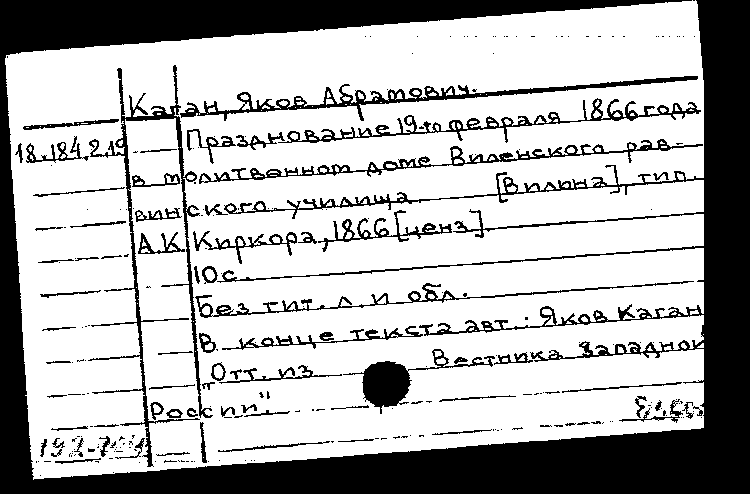 Каган, Яков Абрамович.
18.184.2.19 Празднование 19-го февраля 1866 года
в молитвенном доме Виленского рав-
винского училища. [Вильна], тип.
А.К. Киркора, 1866 [ценз].
10с.
Без тит. л. и обл.
В конце текста авт.: Яков Каган
"Отт. из Вестника Западной
России".